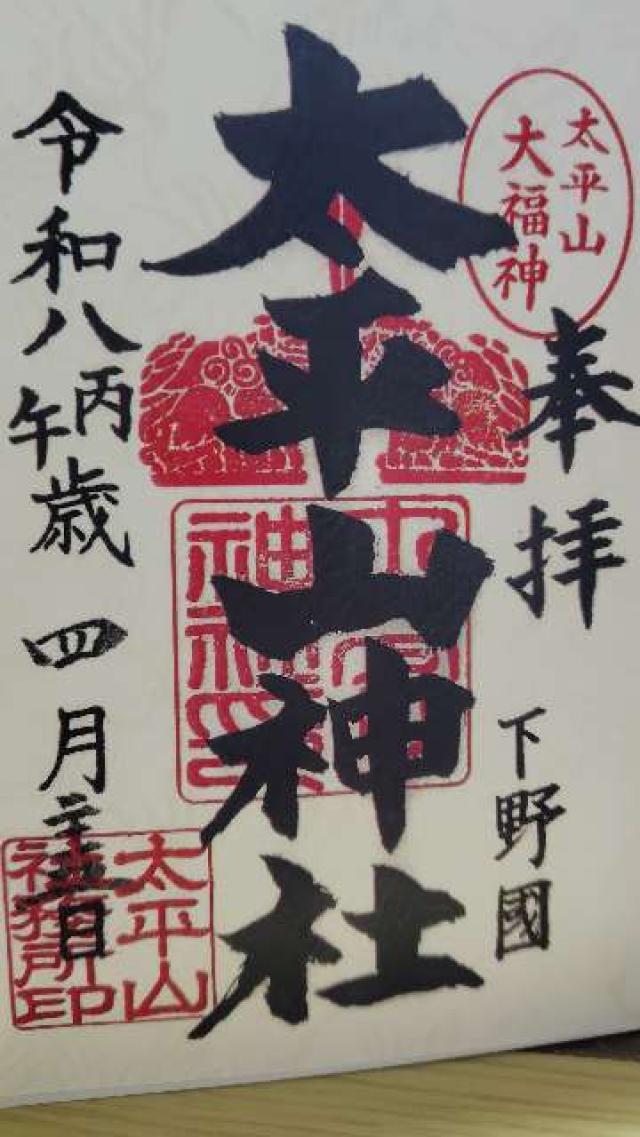 太平山
大福神
奉拝
下野國
太平山神社
令和八丙午歳 四月二十三日
太平山
社務所印